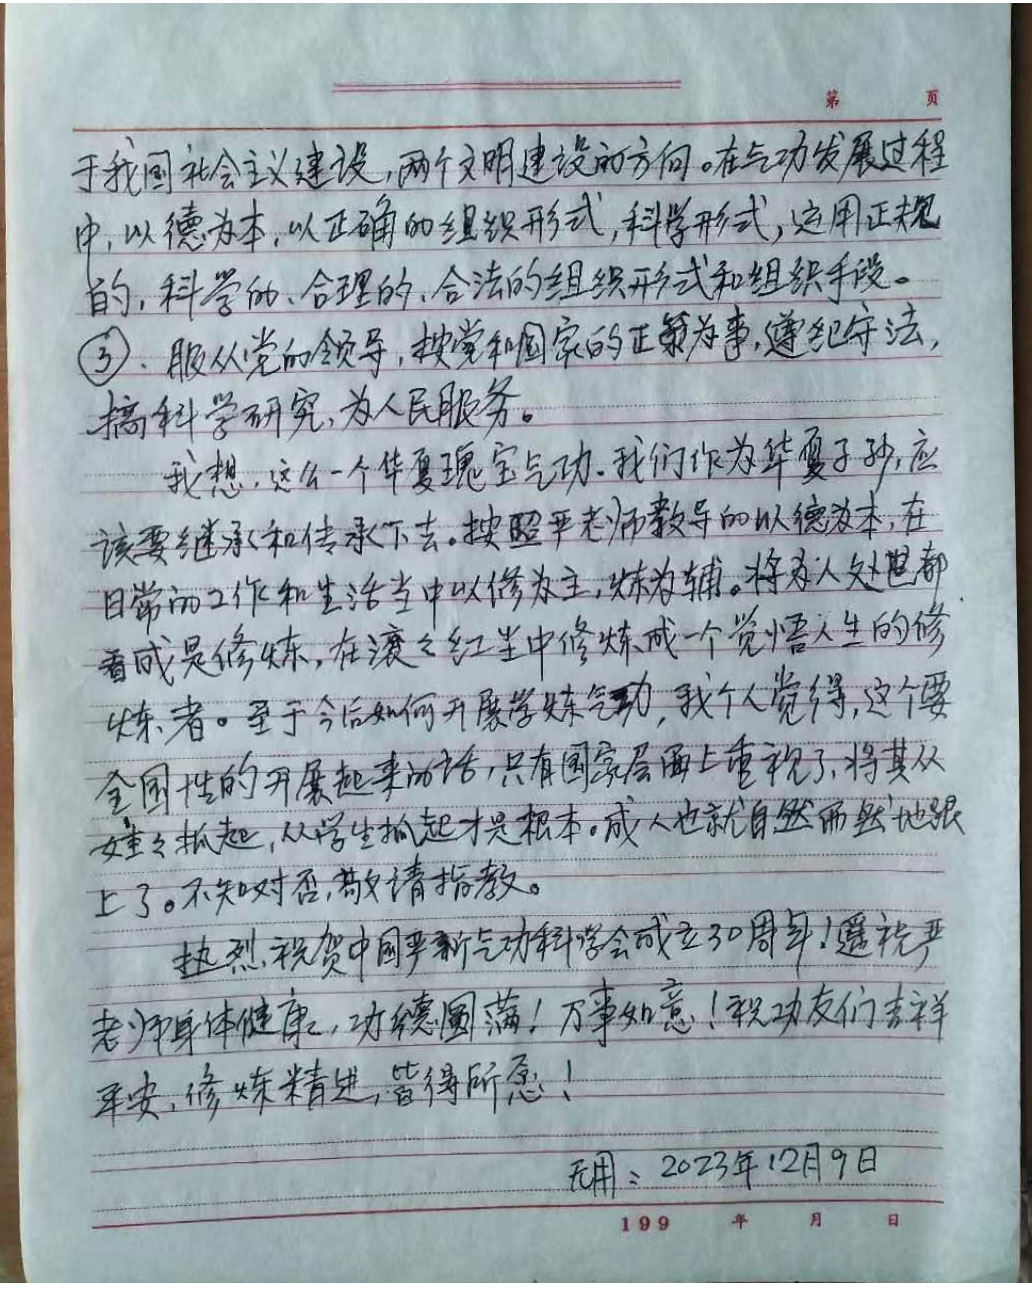 第 页
于我国社会主义建设，两个文明建设的方向。在气功发展过程
中，以德为本，以正确的组织形式，科学形式，运用正规
的，科学的、合理的、合法的组织形式和组织手段。
③．服从党的领导，按党和国家的正策为事，遵纪守法，
搞科学研究，为人民服务。
我想，这么一个华夏瑰宝气功．我们作为华夏子孙，应
该要继承和传承下去。按照严老师教导的以德为本，在
日常的工作和生活当中以修为主，炼为辅。将为人处世都
看成是修炼，在滚々红尘中修炼成一个觉悟人生的修
炼者。至于今后如何开展学炼气功，我个人觉得，这个要
全国性的开展起来的话，只有国家层面上重视了，将其从
娃々抓起，从学生抓起才是根本。成人也就自然而然地跟
上了。不知对否，敬请指教。
热烈祝贺中国严新气功科学会成立30周年！遥祝严
老师身体健康，功德圆满！万事如意！祝功友们吉祥
平安，修炼精进，皆得所愿！
无用：2023年12月9日
199 年 月 日